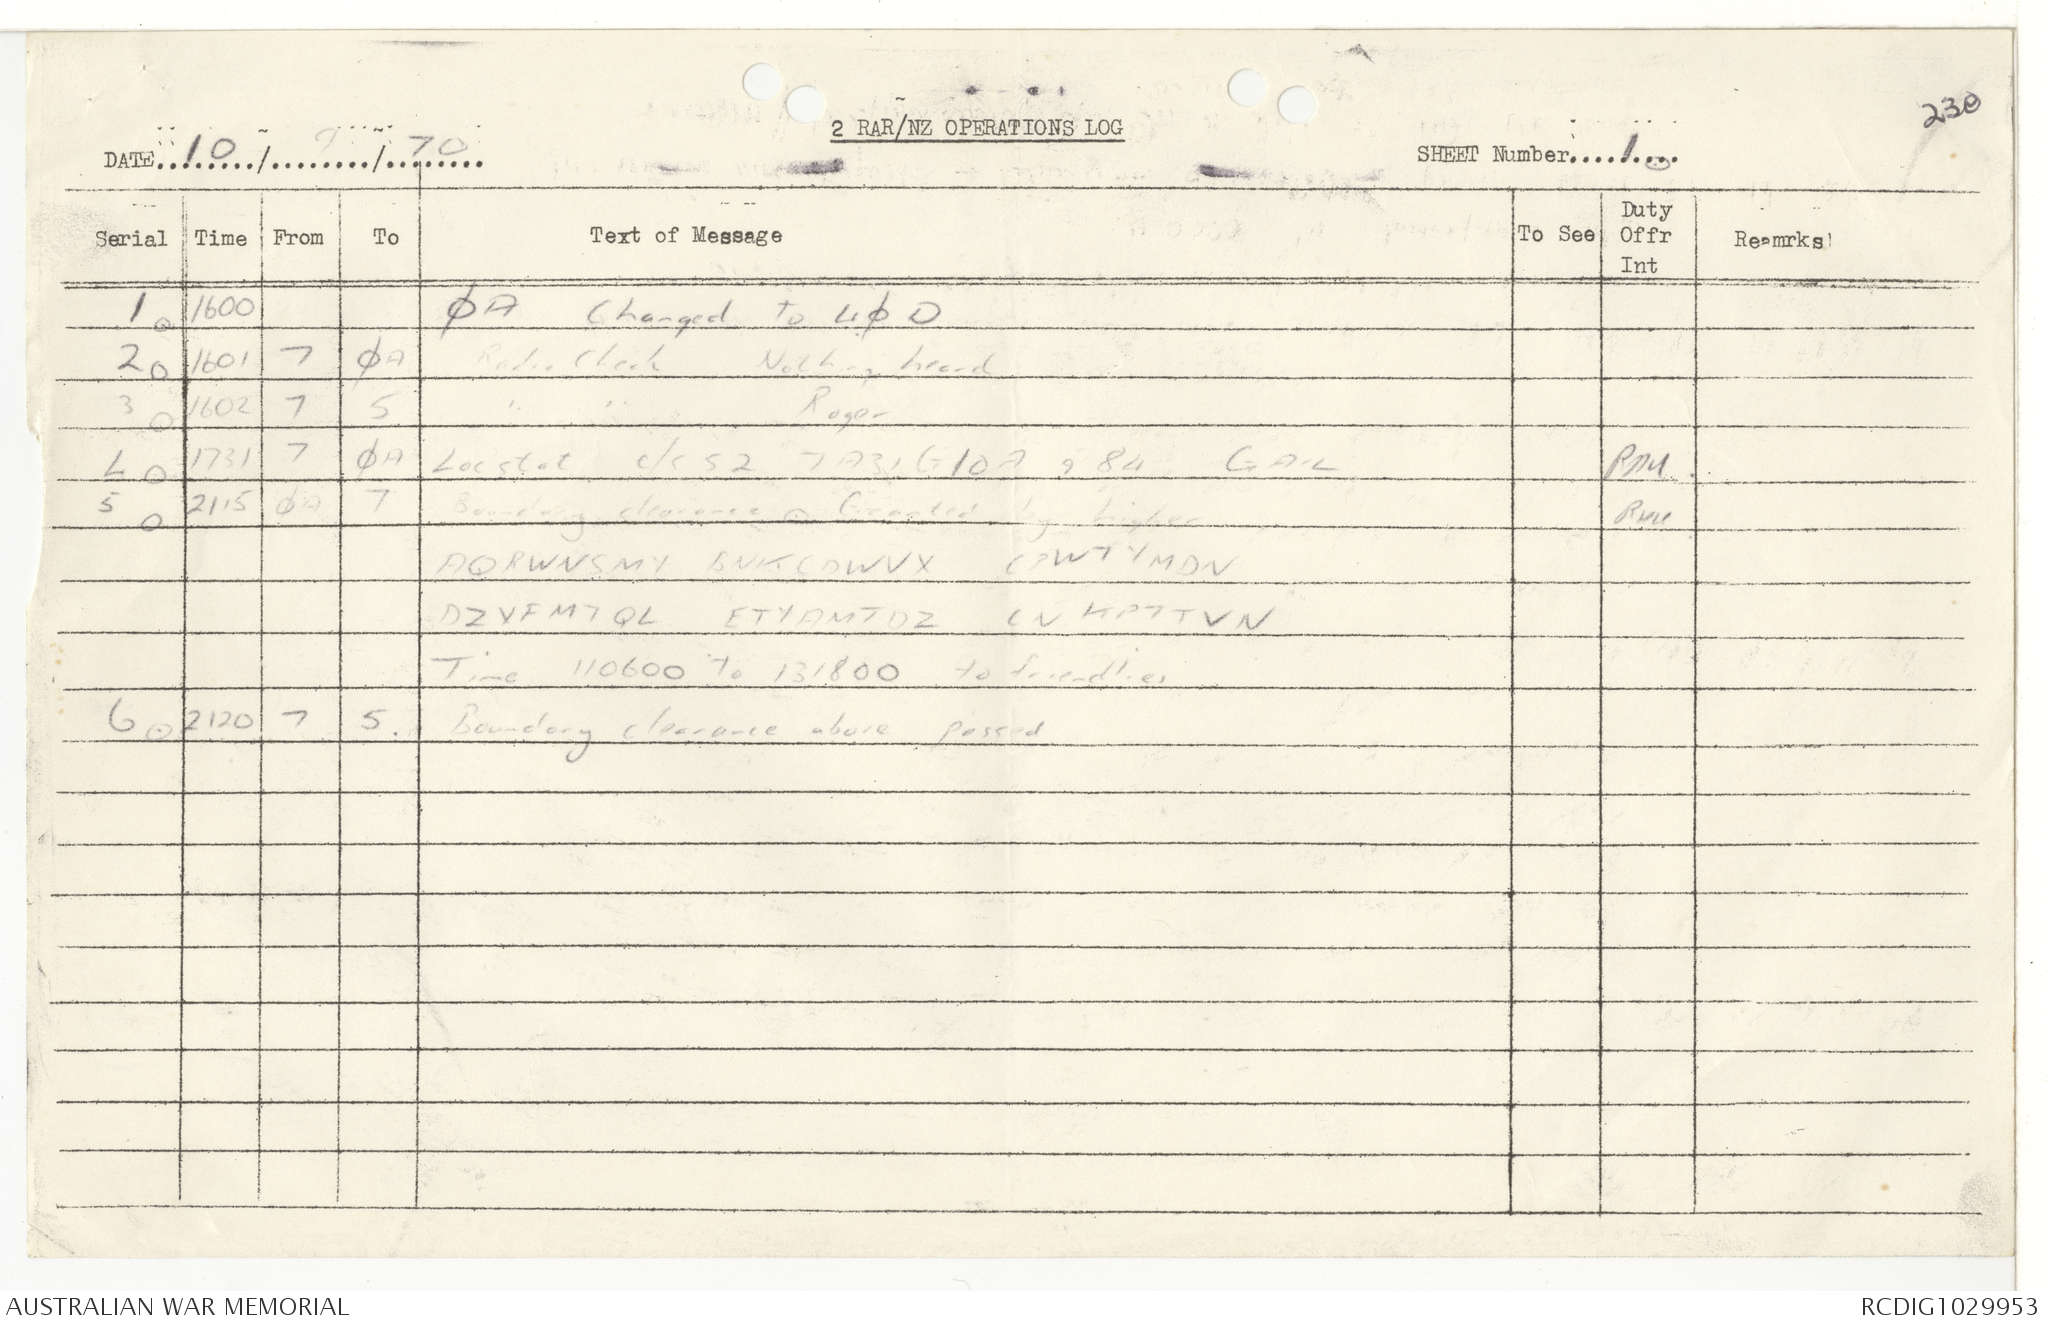 230
2 RAR/NZ OPERATIONS LOG
DATE 10 / 9 / 70
SHEET Number 1
Serial Time From To Text of Message To See Duty Offr Int Reamrks
1 1600 ØA Changed to 4ØD
2 1601 7 ØA Radio Check Nothing heard
3 1602 7 5 " " Roger
4 1731 7 ØA Locstat c/s 52 84 GAIL
5 2115 ØA 7 Boundary clearance Granted by higher
AQRWNSMY
Time 110600 to 131800 to friendlies
6 2120 7 5. Boundary clearance above passed
AUSTRALIAN WAR MEMORIAL
RCDIG1029953